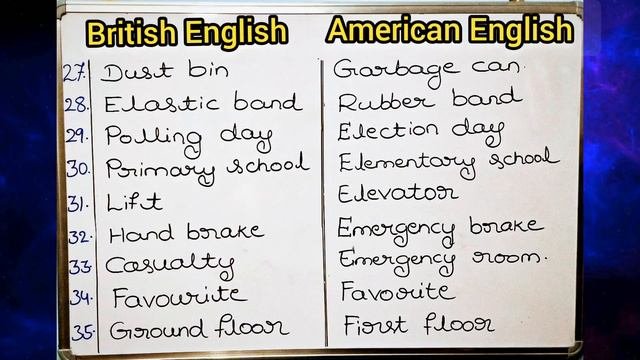 British English American English
27. Dust bin Garbage can.
28. Elastic band Rubber band
29. Polling day Election day
30. Primary school Elementary school
31. Lift Elevator
32. Hand brake Emergency brake
33. Casualty Emergency room.
34. Favourite Favorite
35. Ground floor First floor